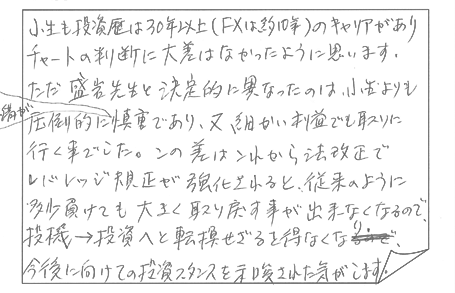 小生も投資歴は30年以上(FXは約10年)のキャリアがあり
チャートの判断に大差はなかったように思います。
ただ 盛岩先生と決定的に異なったのは、小生よりも
圧倒的に慎重であり、又 細かい利益でも取りに
行く事でした。この差はこれから法改正で
レバレッジ規正が強化されると、従来のように
多少負けても大きく取り戻す事が出来なくなるので、
投機→投資へと転換せざるを得なくなり、
今後に向けての投資スタンスを示唆された気がします。